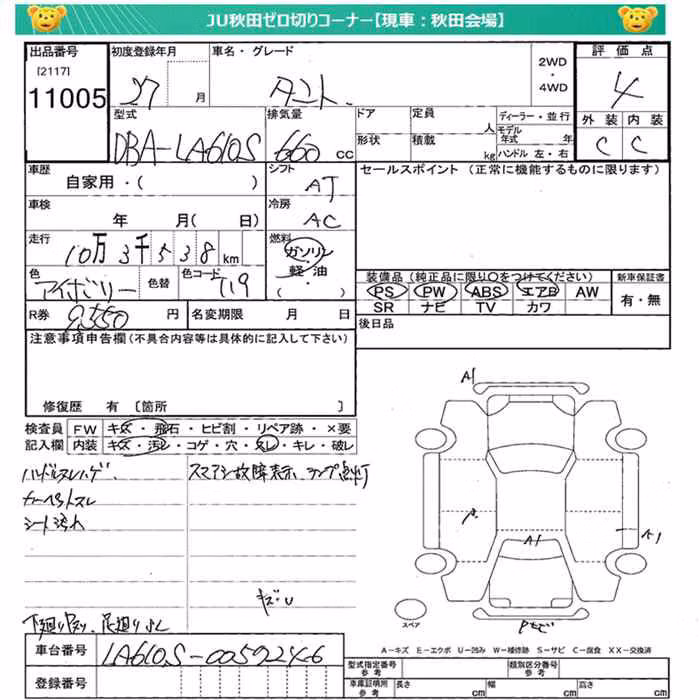 JU秋田ゼロ切りコーナー【現車：秋田会場】
出品番号 初度登録年月 車名・グレード 2WD ・ 4WD 評価点
[2117]
11005 27 月 タント 4
型式 排気量 ドア 定員 人 ディーラー・並行 外装 内装
DBA-LA610S 660 cc 形状 積載 kg モデル年式 年 ハンドル 左・右 C C
車歴 シフト セールスポイント (正常に機能するものに限ります)
自家用・( ) AT
車検 冷房
年 月( 日) AC
走行 燃料
10万3千538km ガソリン・軽油
色 色替 色コード ( ) 装備品(純正品に限り○をつけてください) 新車保証書
アイボリー T19 PS PW ABS エアB AW 有・無
SR ナビ TV カワ
R券 9,550円 名変期限 月 日 後日品
注意事項申告欄(不具合内容等は具体的に記入して下さい)
修復歴 有 〔箇所 〕
検査員 FW キズ・飛石・ヒビ割・リペア跡・×要
記入欄 内装 キズ・汚レ・コゲ・穴・スレ・キレ・破レ
ハンドルスレハゲ スマアシ故障表示、ランプ点灯
カーペットスレ
シート汚れ
キズ・U
下廻りサビ、足廻りサビ
A1
A1
A1
スペア
A-キズ E-エクボ U-凹み W-補修跡 S-サビ C-腐食 XX-交換済
車台番号 LA610S-0059224 型式指定番号 参考 類別区分番号 参考
登録番号 車庫証明所 参考 長さ cm 幅 cm 高さ cm